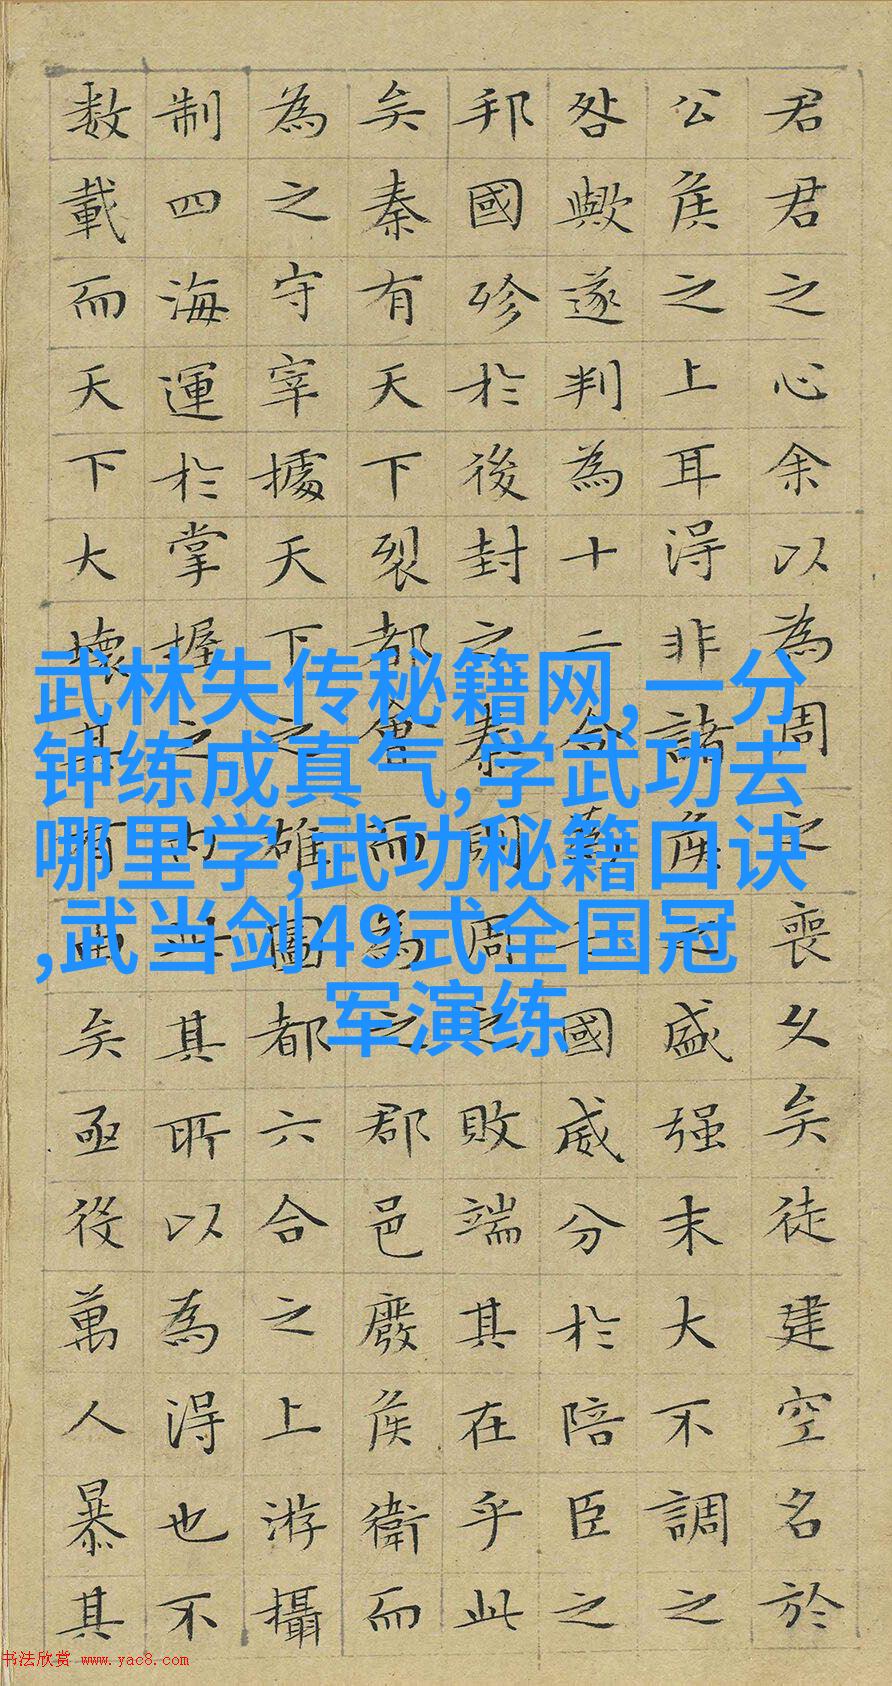 君君之心余以為周之喪久矣徒建空名於
公侯之上耳得非諸侯之盛强末大不調之
咎歟遂判為十二合為七國威分於陪臣之
邦國殄於後封之秦則周之敗端其在乎此
矣秦有天下裂都會而為之郡邑廢侯衛而
為之守宰據天下之雄圖都六合之上游攝
制四海運於掌握之內此其所以為得也不
数載而天下大壞其有由矣亟役萬人暴其
武林失传秘籍网,一分
钟练成真气,学武功去
哪里学,武功秘籍口诀
,武当剑49式全国冠
军演练
书法欣赏 www.yac8.com